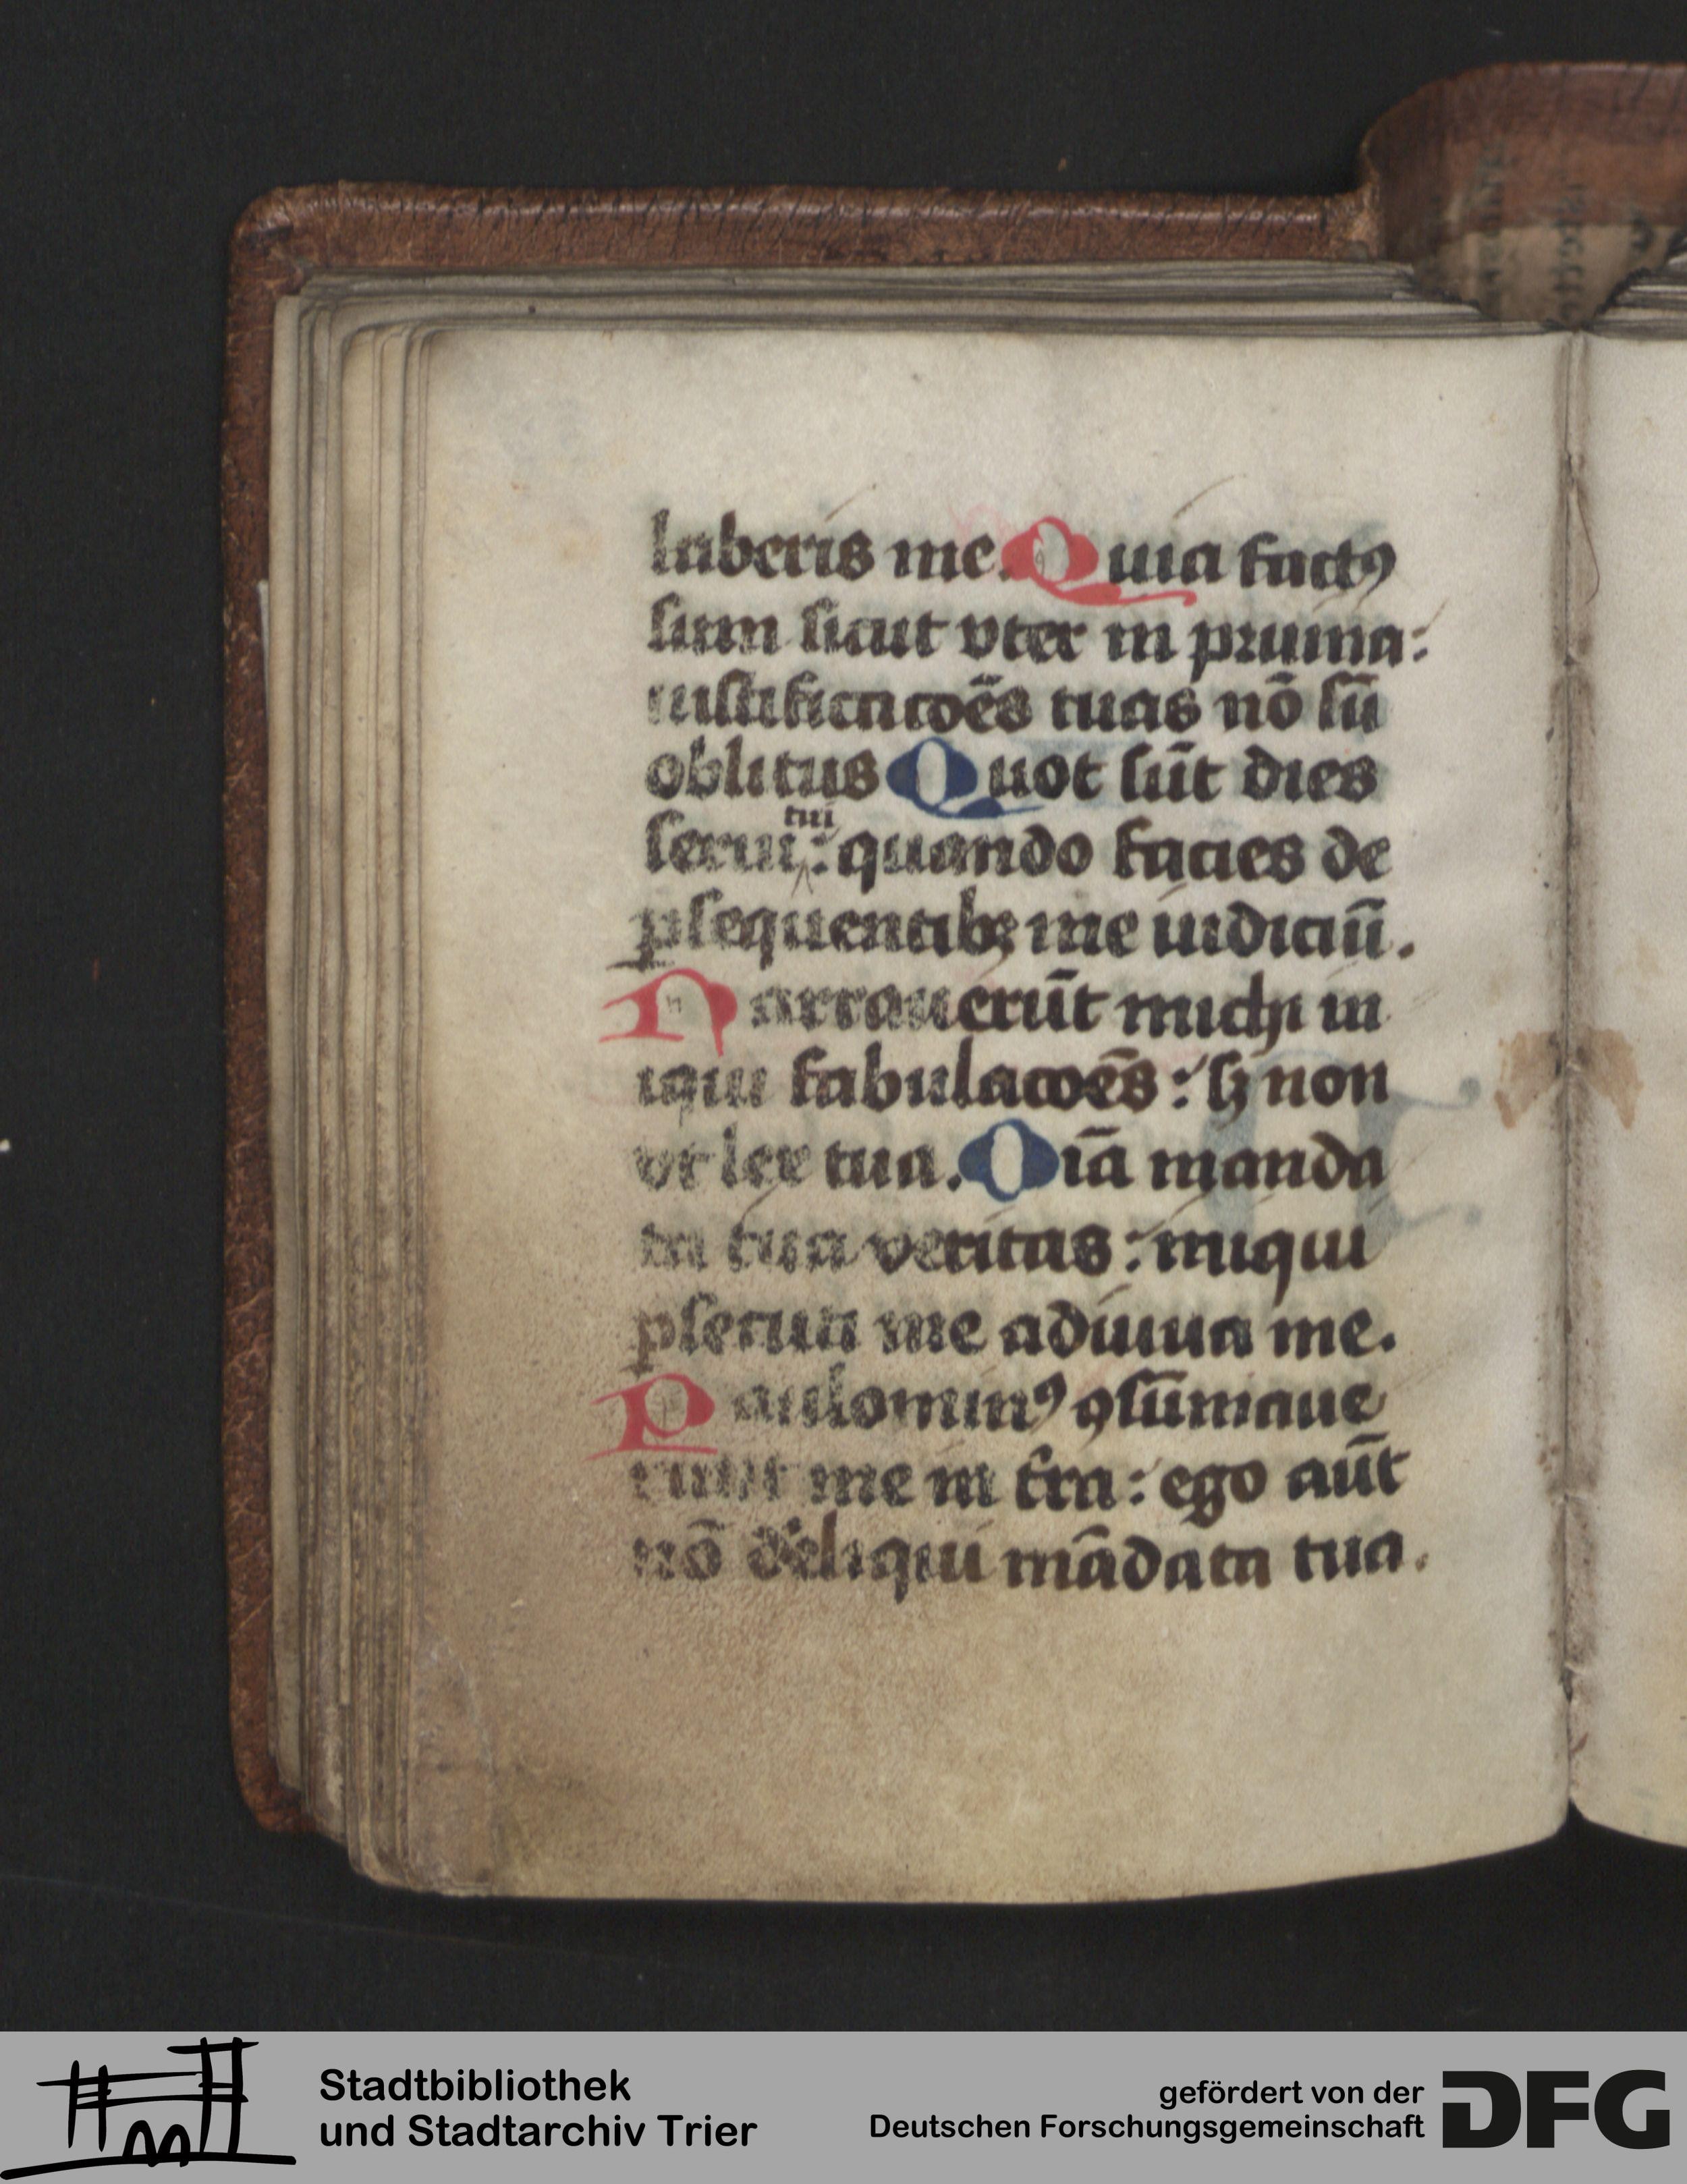 laberis me. Quia factꝰ
sum sicut vter in pruina:
iustificacōēs tuas nō sū
oblitus Quot sūt dies
serui tui: quando facies de
ꝑsequentibꝫ me iudiciū.
Narrauerūt michi in
iqui fabulacōēs: sꝫ non
vt lex tua. Oīa manda
ta tua veritas: iniqui
ꝑsecuti me adiuua me.
Paulominꝰ ꝯsūmaue
runt me in tra: ego aūt
nō deliqui mādata tua.
Stadtbibliothek
und Stadtarchiv Trier
gefördert von der
Deutschen Forschungsgemeinschaft
DFG